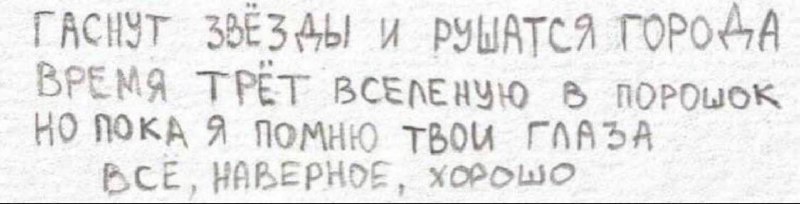 ГАСНУТ ЗВЁЗДЫ И РУШАТСЯ ГОРОДА
ВРЕМЯ ТРЁТ ВСЕЛЕНУЮ В ПОРОШОК
НО ПОКА Я ПОМНЮ ТВОИ ГЛАЗА
ВСЁ, НАВЕРНОЕ, ХОРОШО